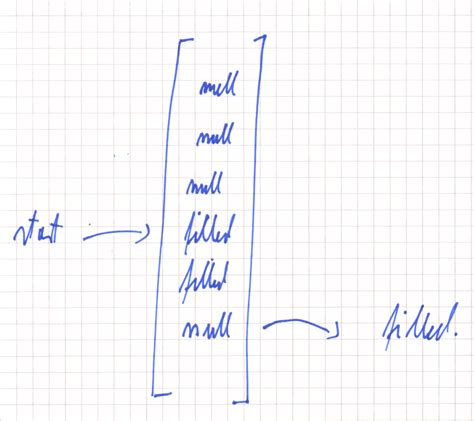 null
null
null
start → filled
filled
null → filled.